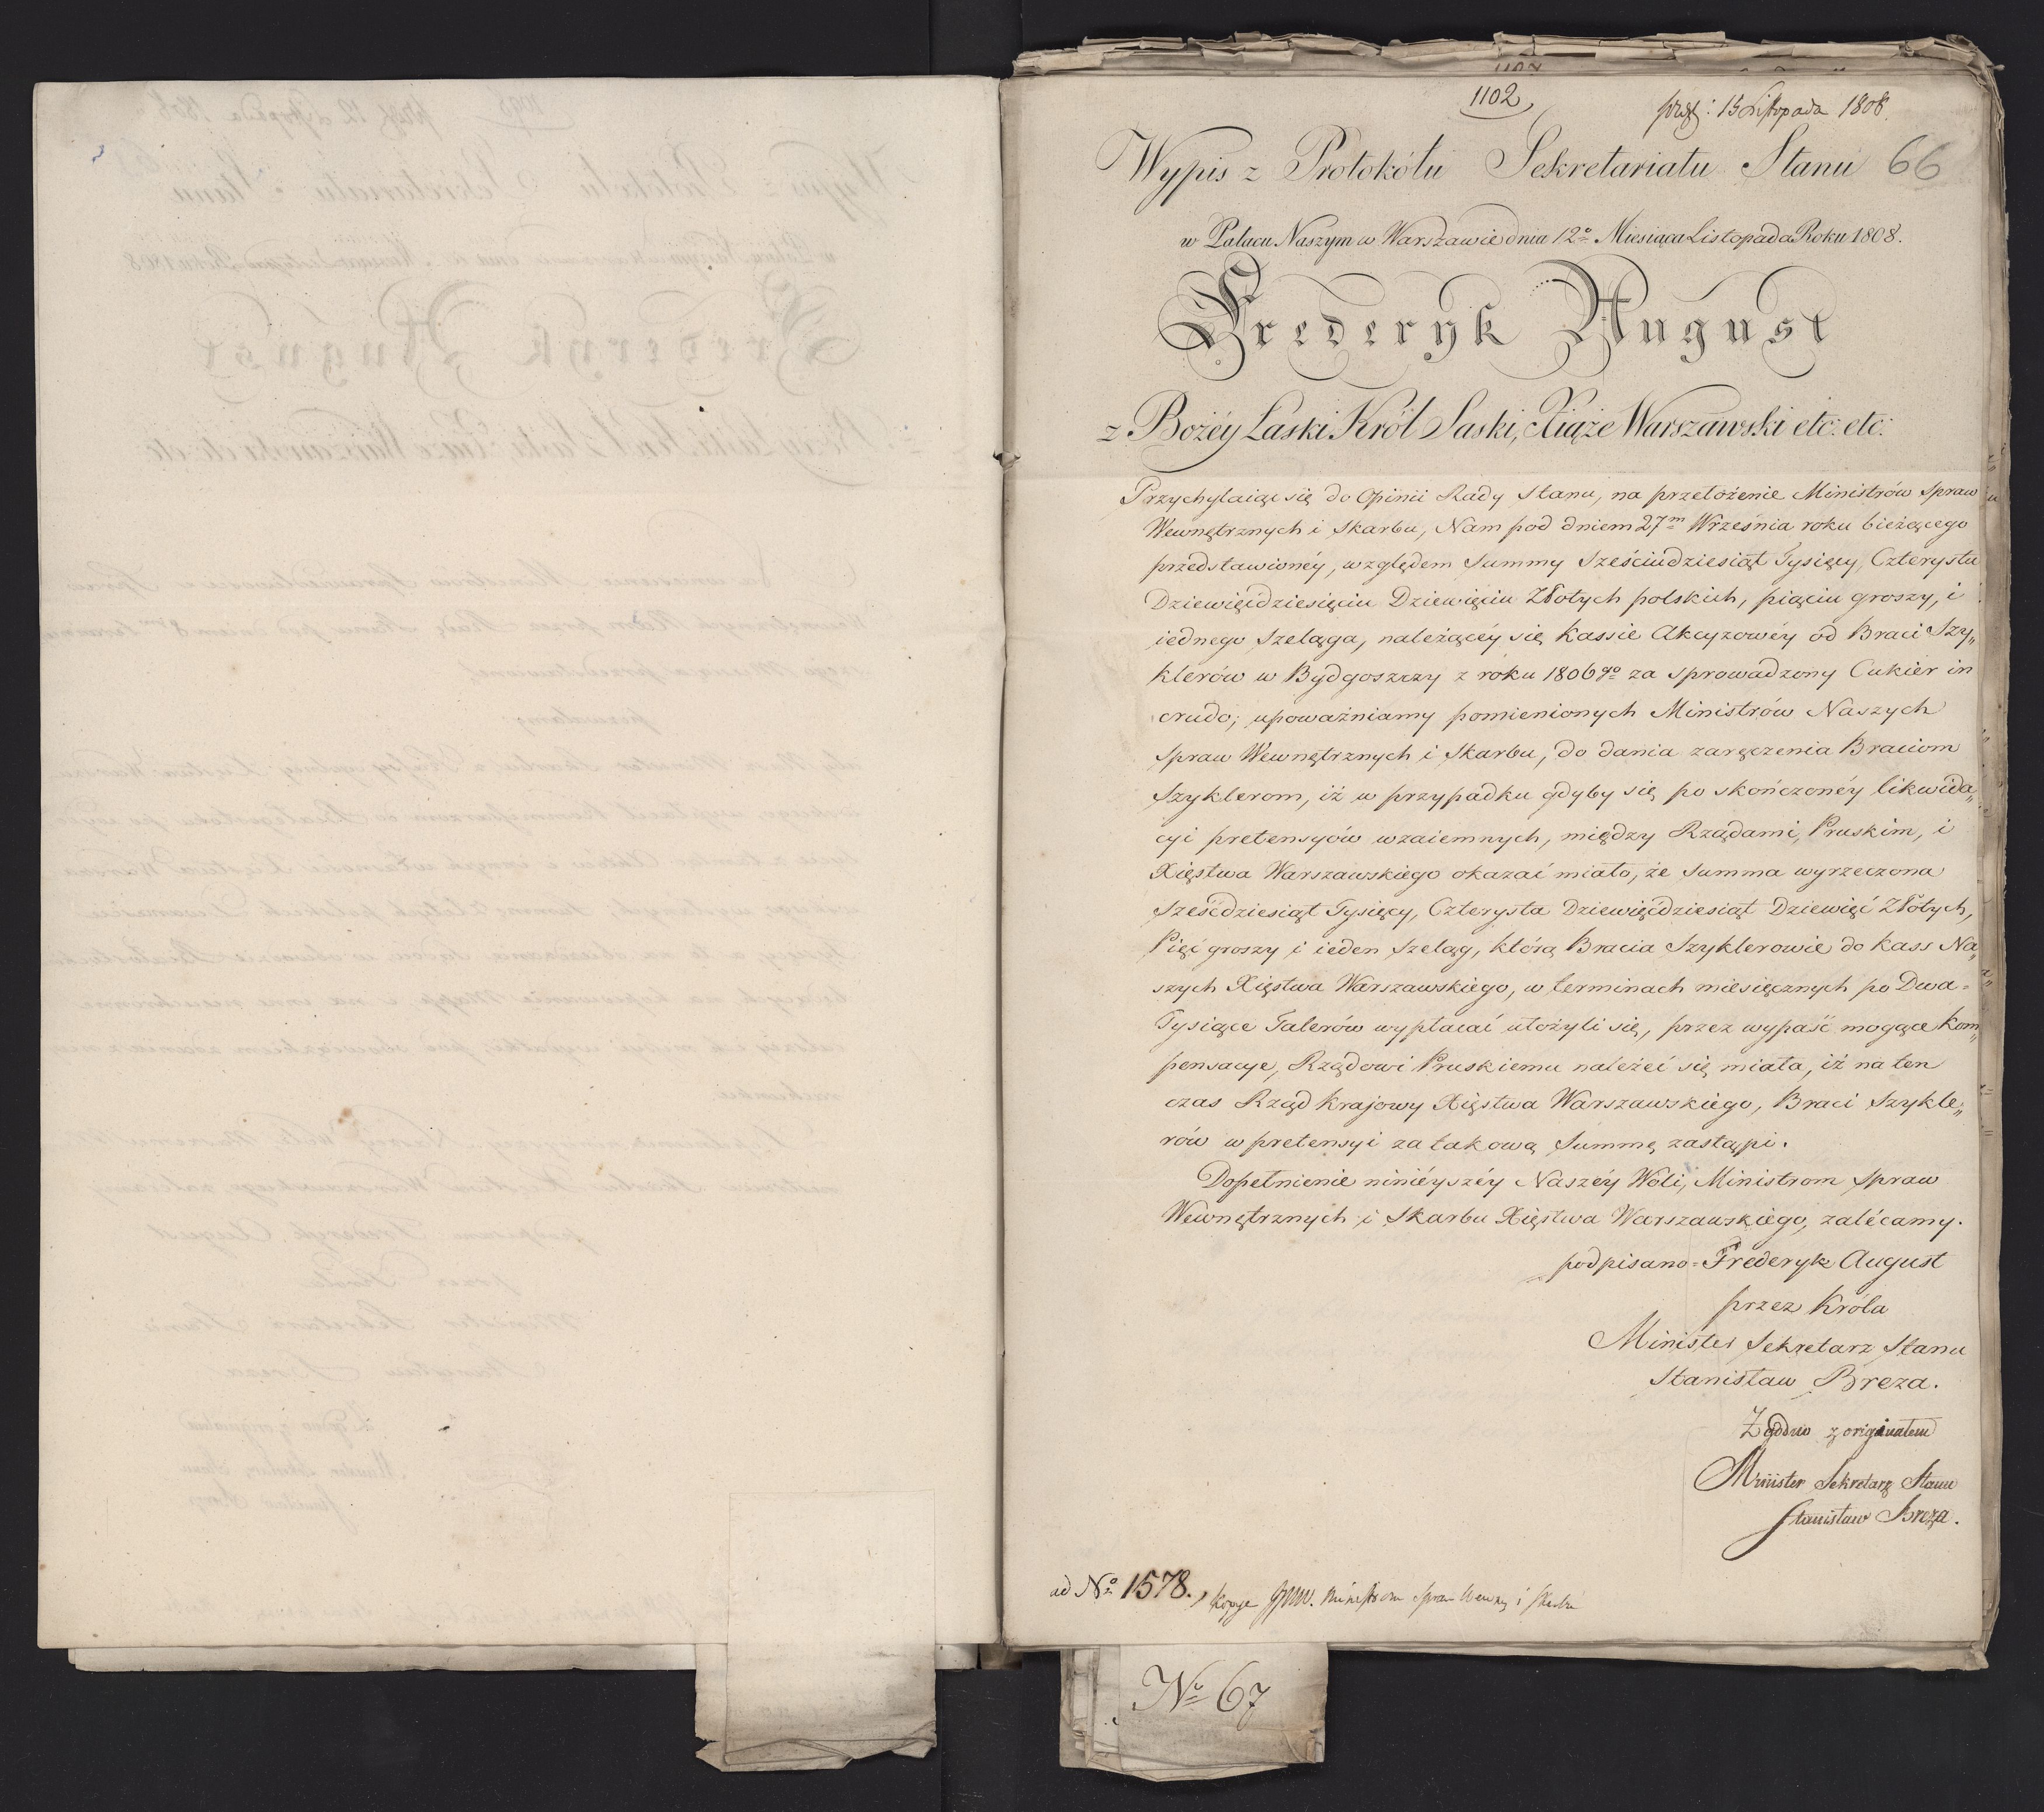 1102
Wypis z Protokółu Sekretariatu Stanu 66
w Pałacu Naszym w Warszawie dnia 12º Miesiąca Listopada Roku 1808.
Frederyk August
z Bożéy Łaski Król Saski, Xiąże Warszawski etc: etc:
Przychylaiąc się do Opinii Rady Stanu, na przełożenie Ministrów Spraw
Wewnętrznych i Skarbu, Nam pod dniem 27m Września roku bieżącego
przedstawionéy, względem Summy Sześciudziesiąt Tysięcy, Czterystu
Dziewięćdziesięciu Dziewięciu Złotych polskich, pięciu groszy, i
iednego Szeląga, należącéy się Kassie Akcyzowéy od Braci Szy„
klerów w Bydgoszczy z roku 1806go za sprowadzony Cukier in
crudo; upoważniamy pomienionych Ministrów Naszych
Spraw Wewnętrznych i Skarbu, do dania zaręczenia Braciom
Szyklerom, iż w przypadku gdyby się po skończonéy likwida„
cyi pretensyów wzaiemnych, między Rządami, Pruskim, i
Xięstwa Warszawskiego okazać miało, że Summa wyrzeczona
Sześćdziesiąt Tysięcy, Czterysta Dziewięćdziesiąt Dziewięć Złotych,
Pięć groszy i ieden Szeląg, którą Bracia Szyklerowie do Kass Na„
szych Xięstwa Warszawskiego, w terminach miesięcznych po Dwa=
Tysiące Talerów wypłacać ułożyli się, przez wypaść mogące Kom„
pensacye, Rządowi Pruskiemu należeć się miała, iż na ten
czas Rząd Krajowy Xięstwa Warszawskiego, Braci Szykle„
rów w pretensyi za takową Summę zastąpi.
Dopełnienie ninieyszéy Naszéy Woli, Ministrom Spraw
Wewnętrznych i Skarbu Xięstwa Warszawskiego, zalécamy.
podpisano = Frederyk August
przez Króla
Minister Sekretarz Stanu
Stanisław Breza.
Zgodno z originałem
Minister Sekretarz Stanu
Stanisław Breza.
ad Nº 1578. Kopye Ministrom Spraw Wewnę i Skarbu
Nº 67